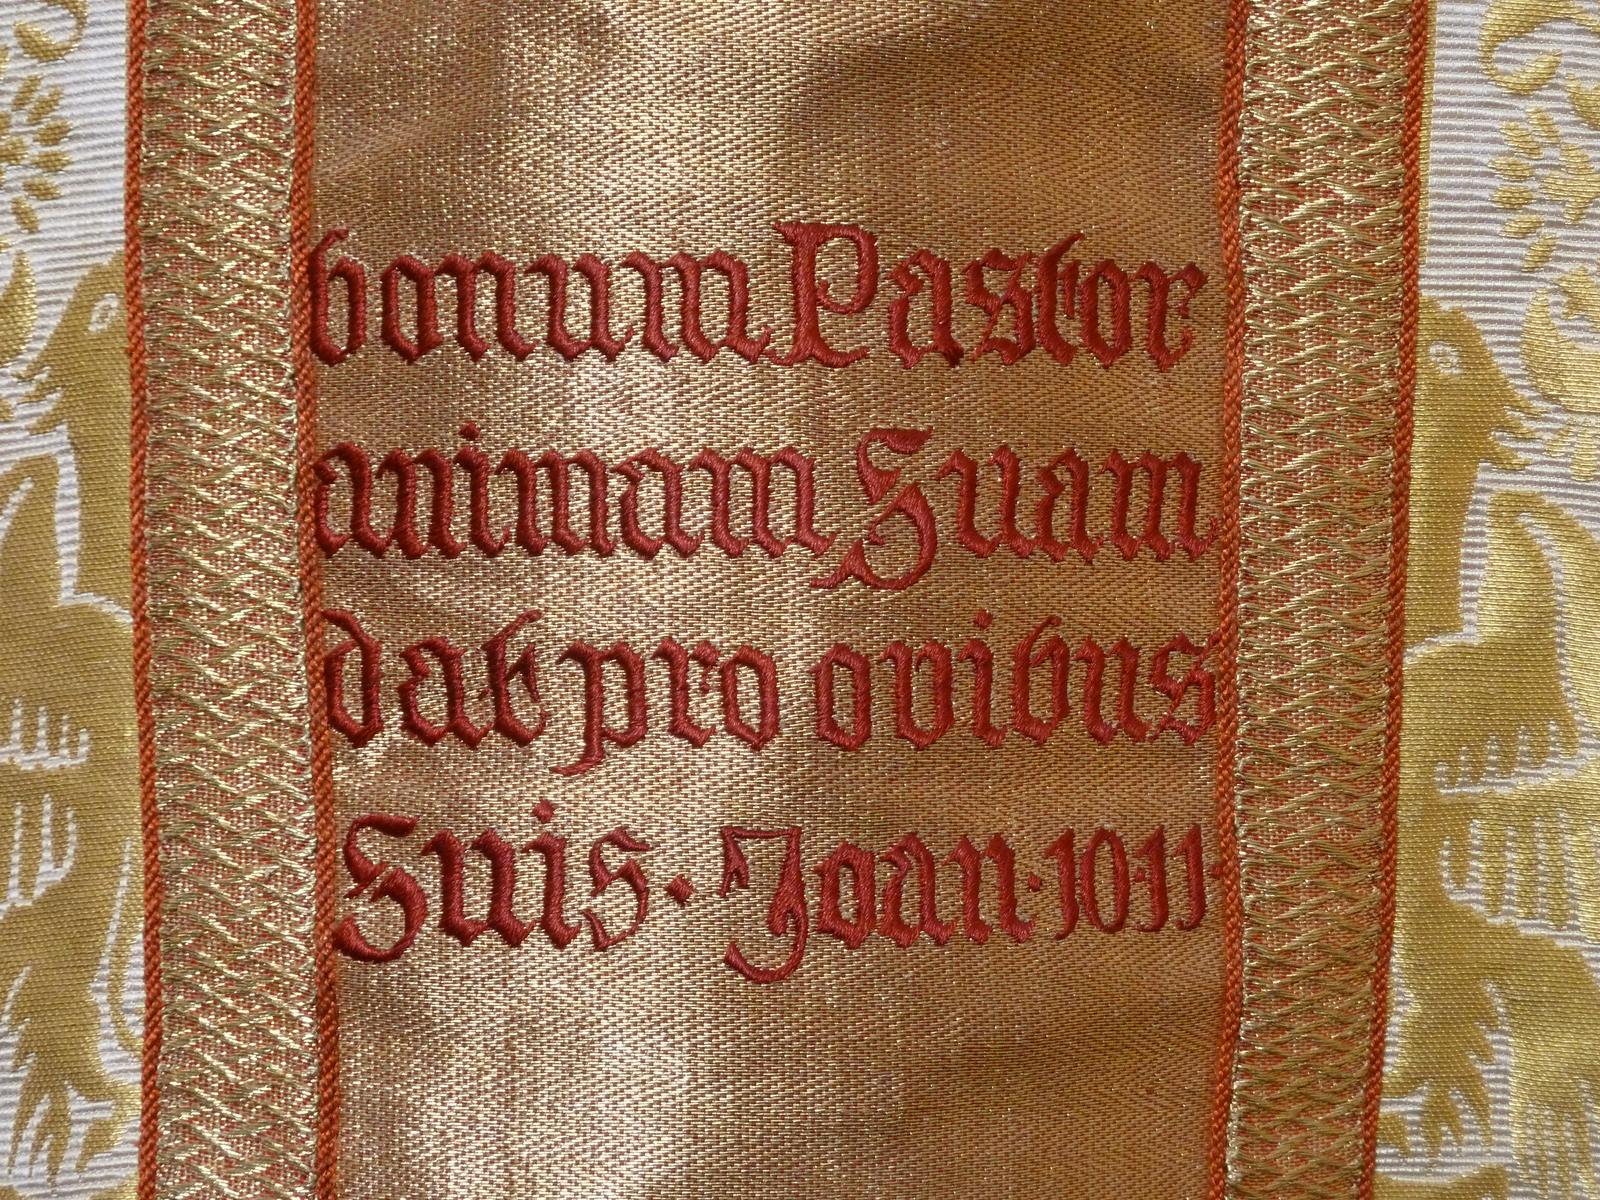 bonum Pastor
animam Suam
dat pro ovibus
Suis. Joan. 10.11.